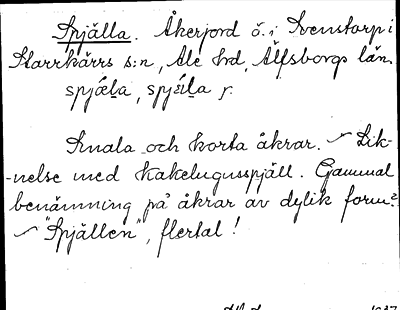 Spjälla. Åkerjord ö. i Svenstorp i
Starrkärrs s:n, Ale hd, Älfsborgs län.
spjǽla, spjǽla f.
Smala och korta åkrar. ~ Lik-
-nelse med kakelugnsspjäll. Gammal
benämning på åkrar av dylik form?
~ "Spjällen", flertal!
1937